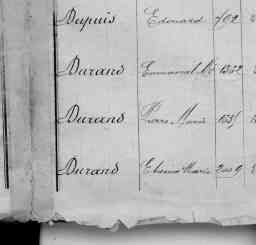 Dupuis Edouard 702
Durand Emmanuel 1362
Durand Pierre Marie
Durand Etienne Marie 2009